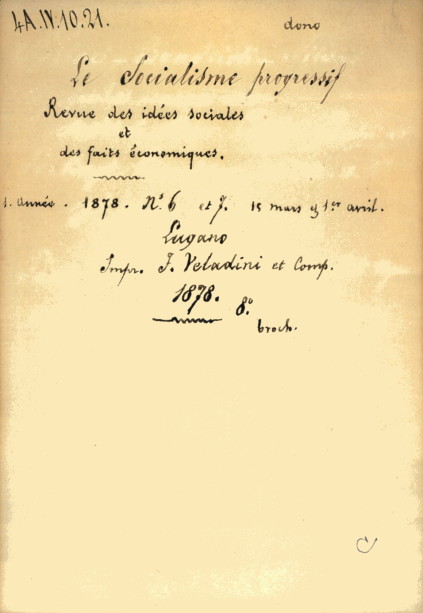 4A.IV.10.21.
dono
Le Socialisme progressif
Revue des idées sociales
et
des faits économiques.
1. Année. 1878. Nº. 6 et 7. 15 mars et 1er avril.
Lugano
Impr. F. Veladini et Comp.
1878.
8º
broch.